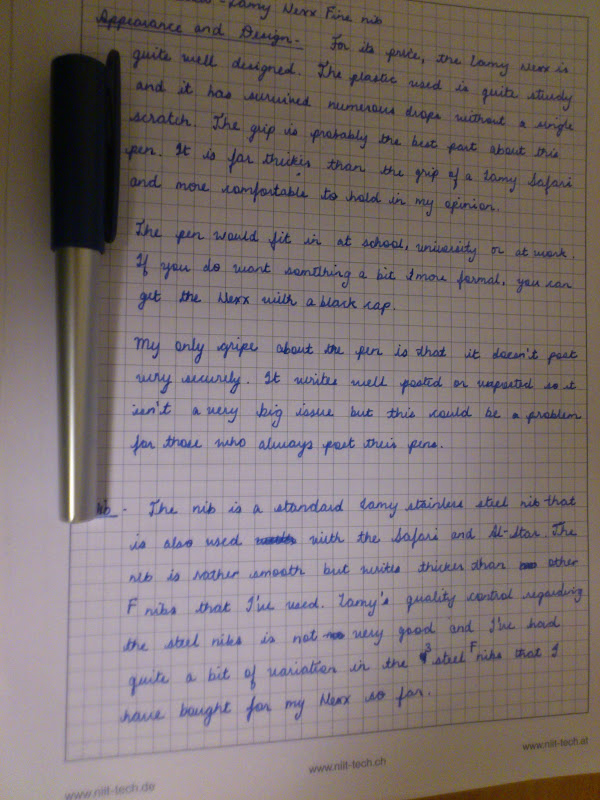 Lamy Nexx Fine nib
Appearance and Design - For its price, the Lamy Nexx is
quite well designed. The plastic used is quite sturdy
and it has survived numerous drops without a single
scratch. The grip is probably the best part about this
pen. It is far thicker than the grip of a Lamy Safari
and more comfortable to hold in my opinion.
The pen would fit in at school, university or at work.
If you do want something a bit more formal, you can
get the Nexx with a black cap.
My only gripe about the pen is that it doesn't post
very securely. It writes well posted or unposted so it
isn't a very big issue but this could be a problem
for those who always post their pens.
Nib - The nib is a standard Lamy stainless steel nib that
is also used with the Safari and Al-Star. The
nib is rather smooth but writes thicker than other
F nibs that I've used. Lamy's quality control regarding
the steel nibs is not very good and I've had
quite a bit of variation in the 3 steel F nibs that I
have bought for my Nexx so far.
www.niit-tech.de
www.niit-tech.ch
www.niit-tech.at